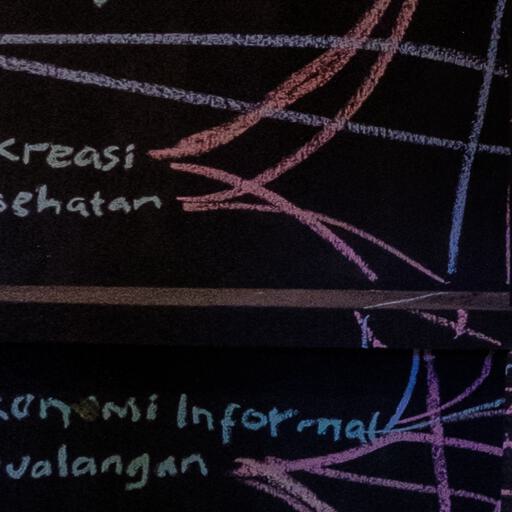 kreasi
sehatan
konomi Informal
valangan